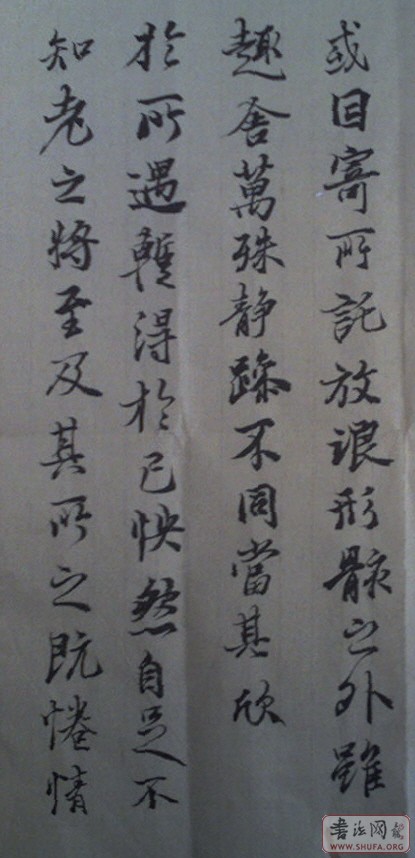 或因寄所託放浪形骸之外雖
趣舍萬殊静躁不同當其欣
於所遇蹔得於己怏然自足不
知老之將至及其所之既惓情
书法网
WWW.SHUFA.ORG